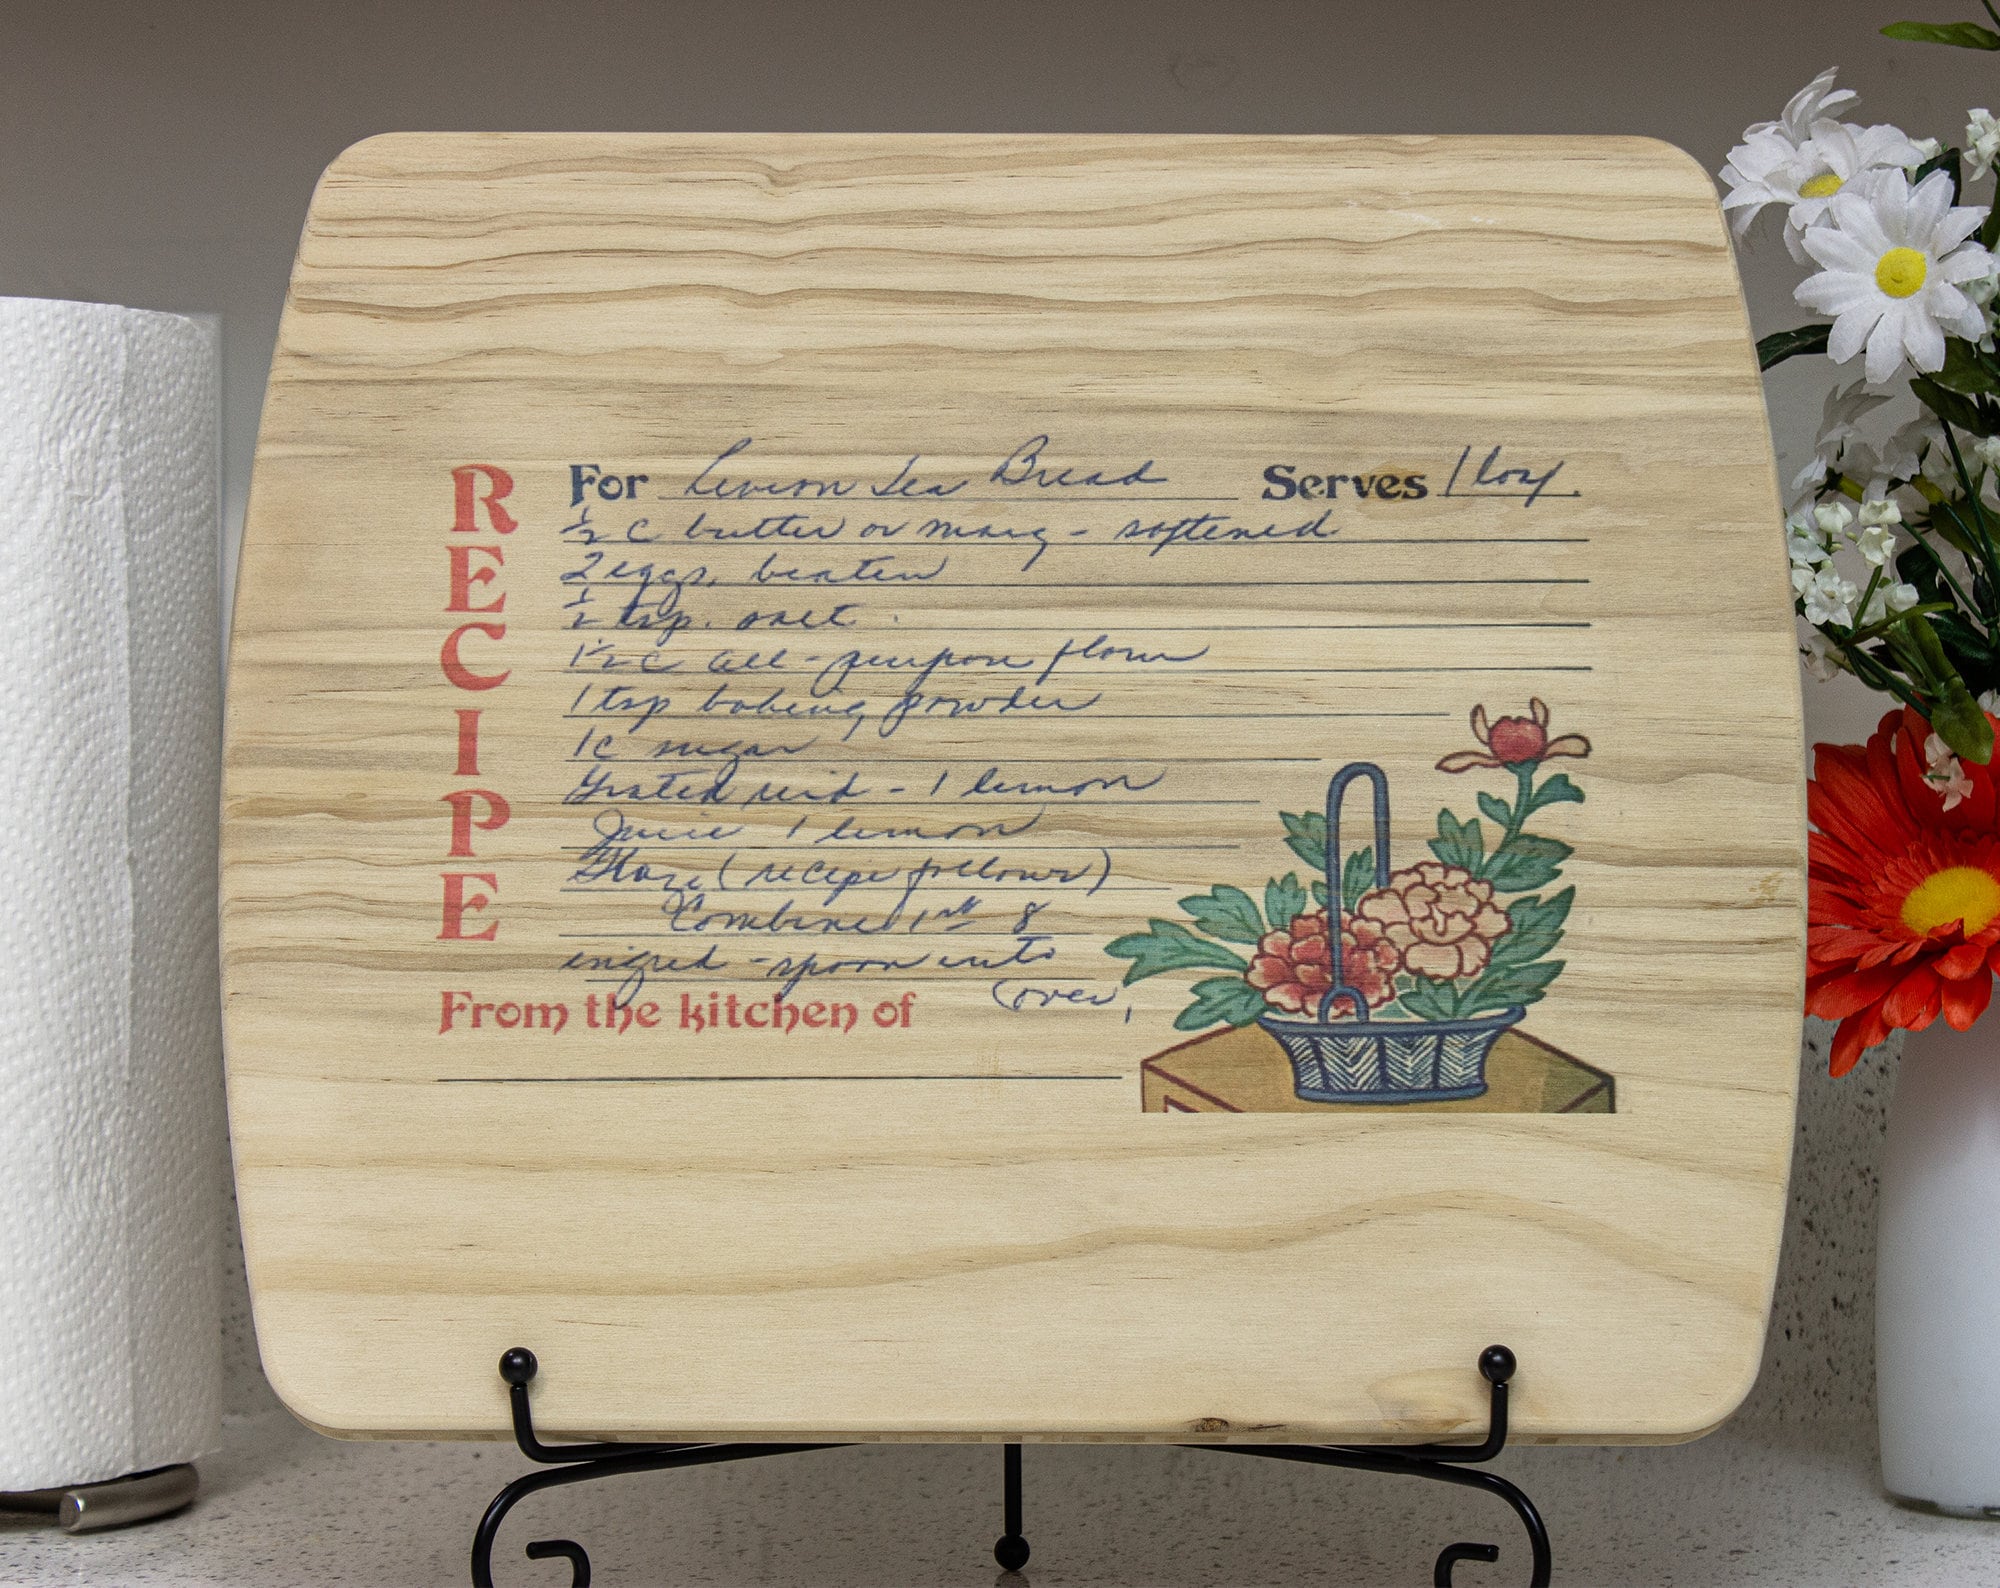 RECIPE
For Lemon Tea Bread Serves 1 loaf.
1/2 c butter or marg - softened
2 eggs, beaten
1/2 tsp. salt
1 1/2 c all-purpose flour
1 tsp baking powder
1c sugar
Grated rind - 1 lemon
Juice 1 lemon
Glaze (recipe follows)
Combine 1st 8
ingred - spoon into
(over)
From the kitchen of